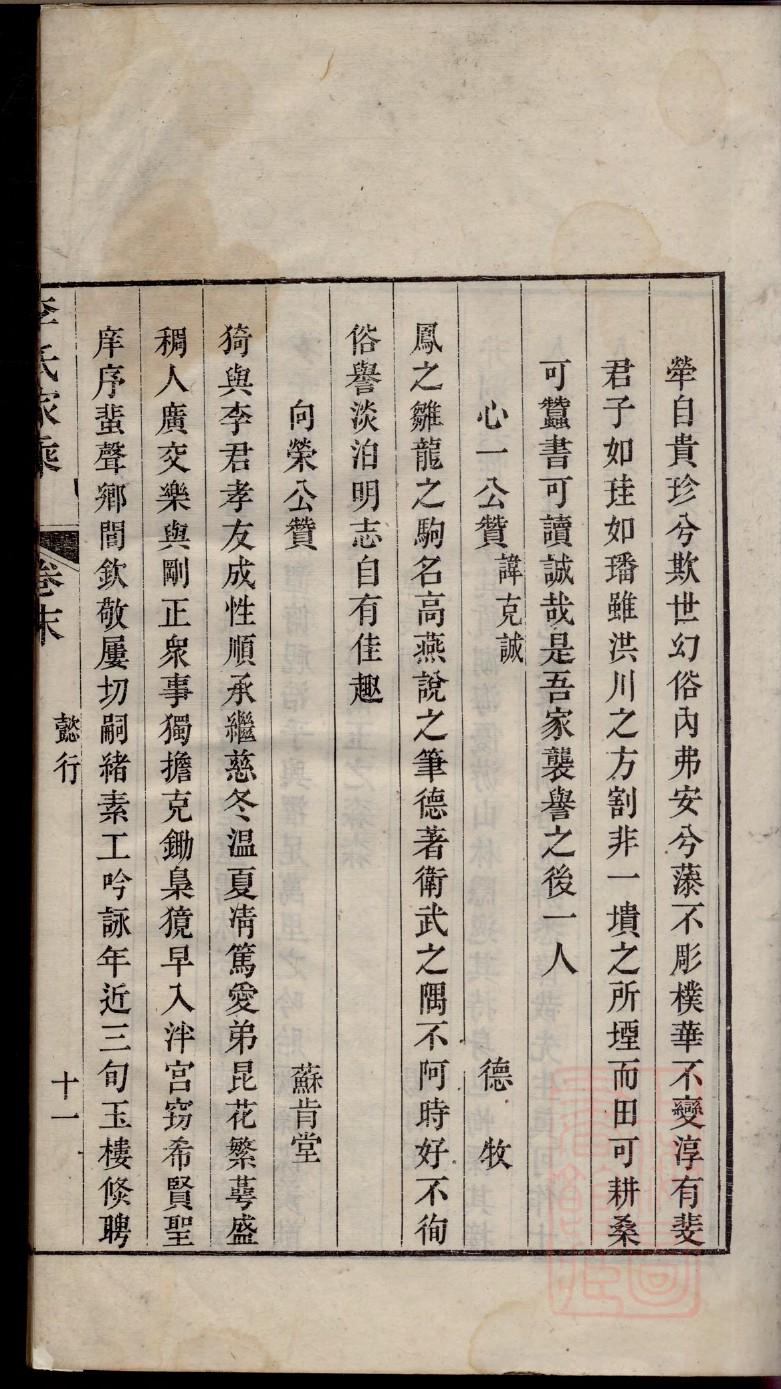 犖自貴珍兮欺世幻俗內弗安兮藻不彫樸華不變淳有斐
君子如珪如璠雖洪川之方割非一墳之所堙而田可耕桑
可蠶書可讀誠哉是吾家襲譽之後一人
心一公贊 諱克誠 德牧
鳳之雛龍之駒名高燕說之筆德著衛武之隅不阿時好不徇
俗譽淡泊明志自有佳趣
向榮公贊 蘇肯堂
猗與李君孝友成性順承繼慈冬温夏凊篤愛弟昆花繁萼盛
稠人廣交樂與剛正衆事獨擔克鋤梟獍早入泮宮窃希賢聖
庠序蜚聲鄉閭欽敬屢切嗣緒素工吟詠年近三旬玉樓倏聘
李氏家乘 卷末 懿行 十一